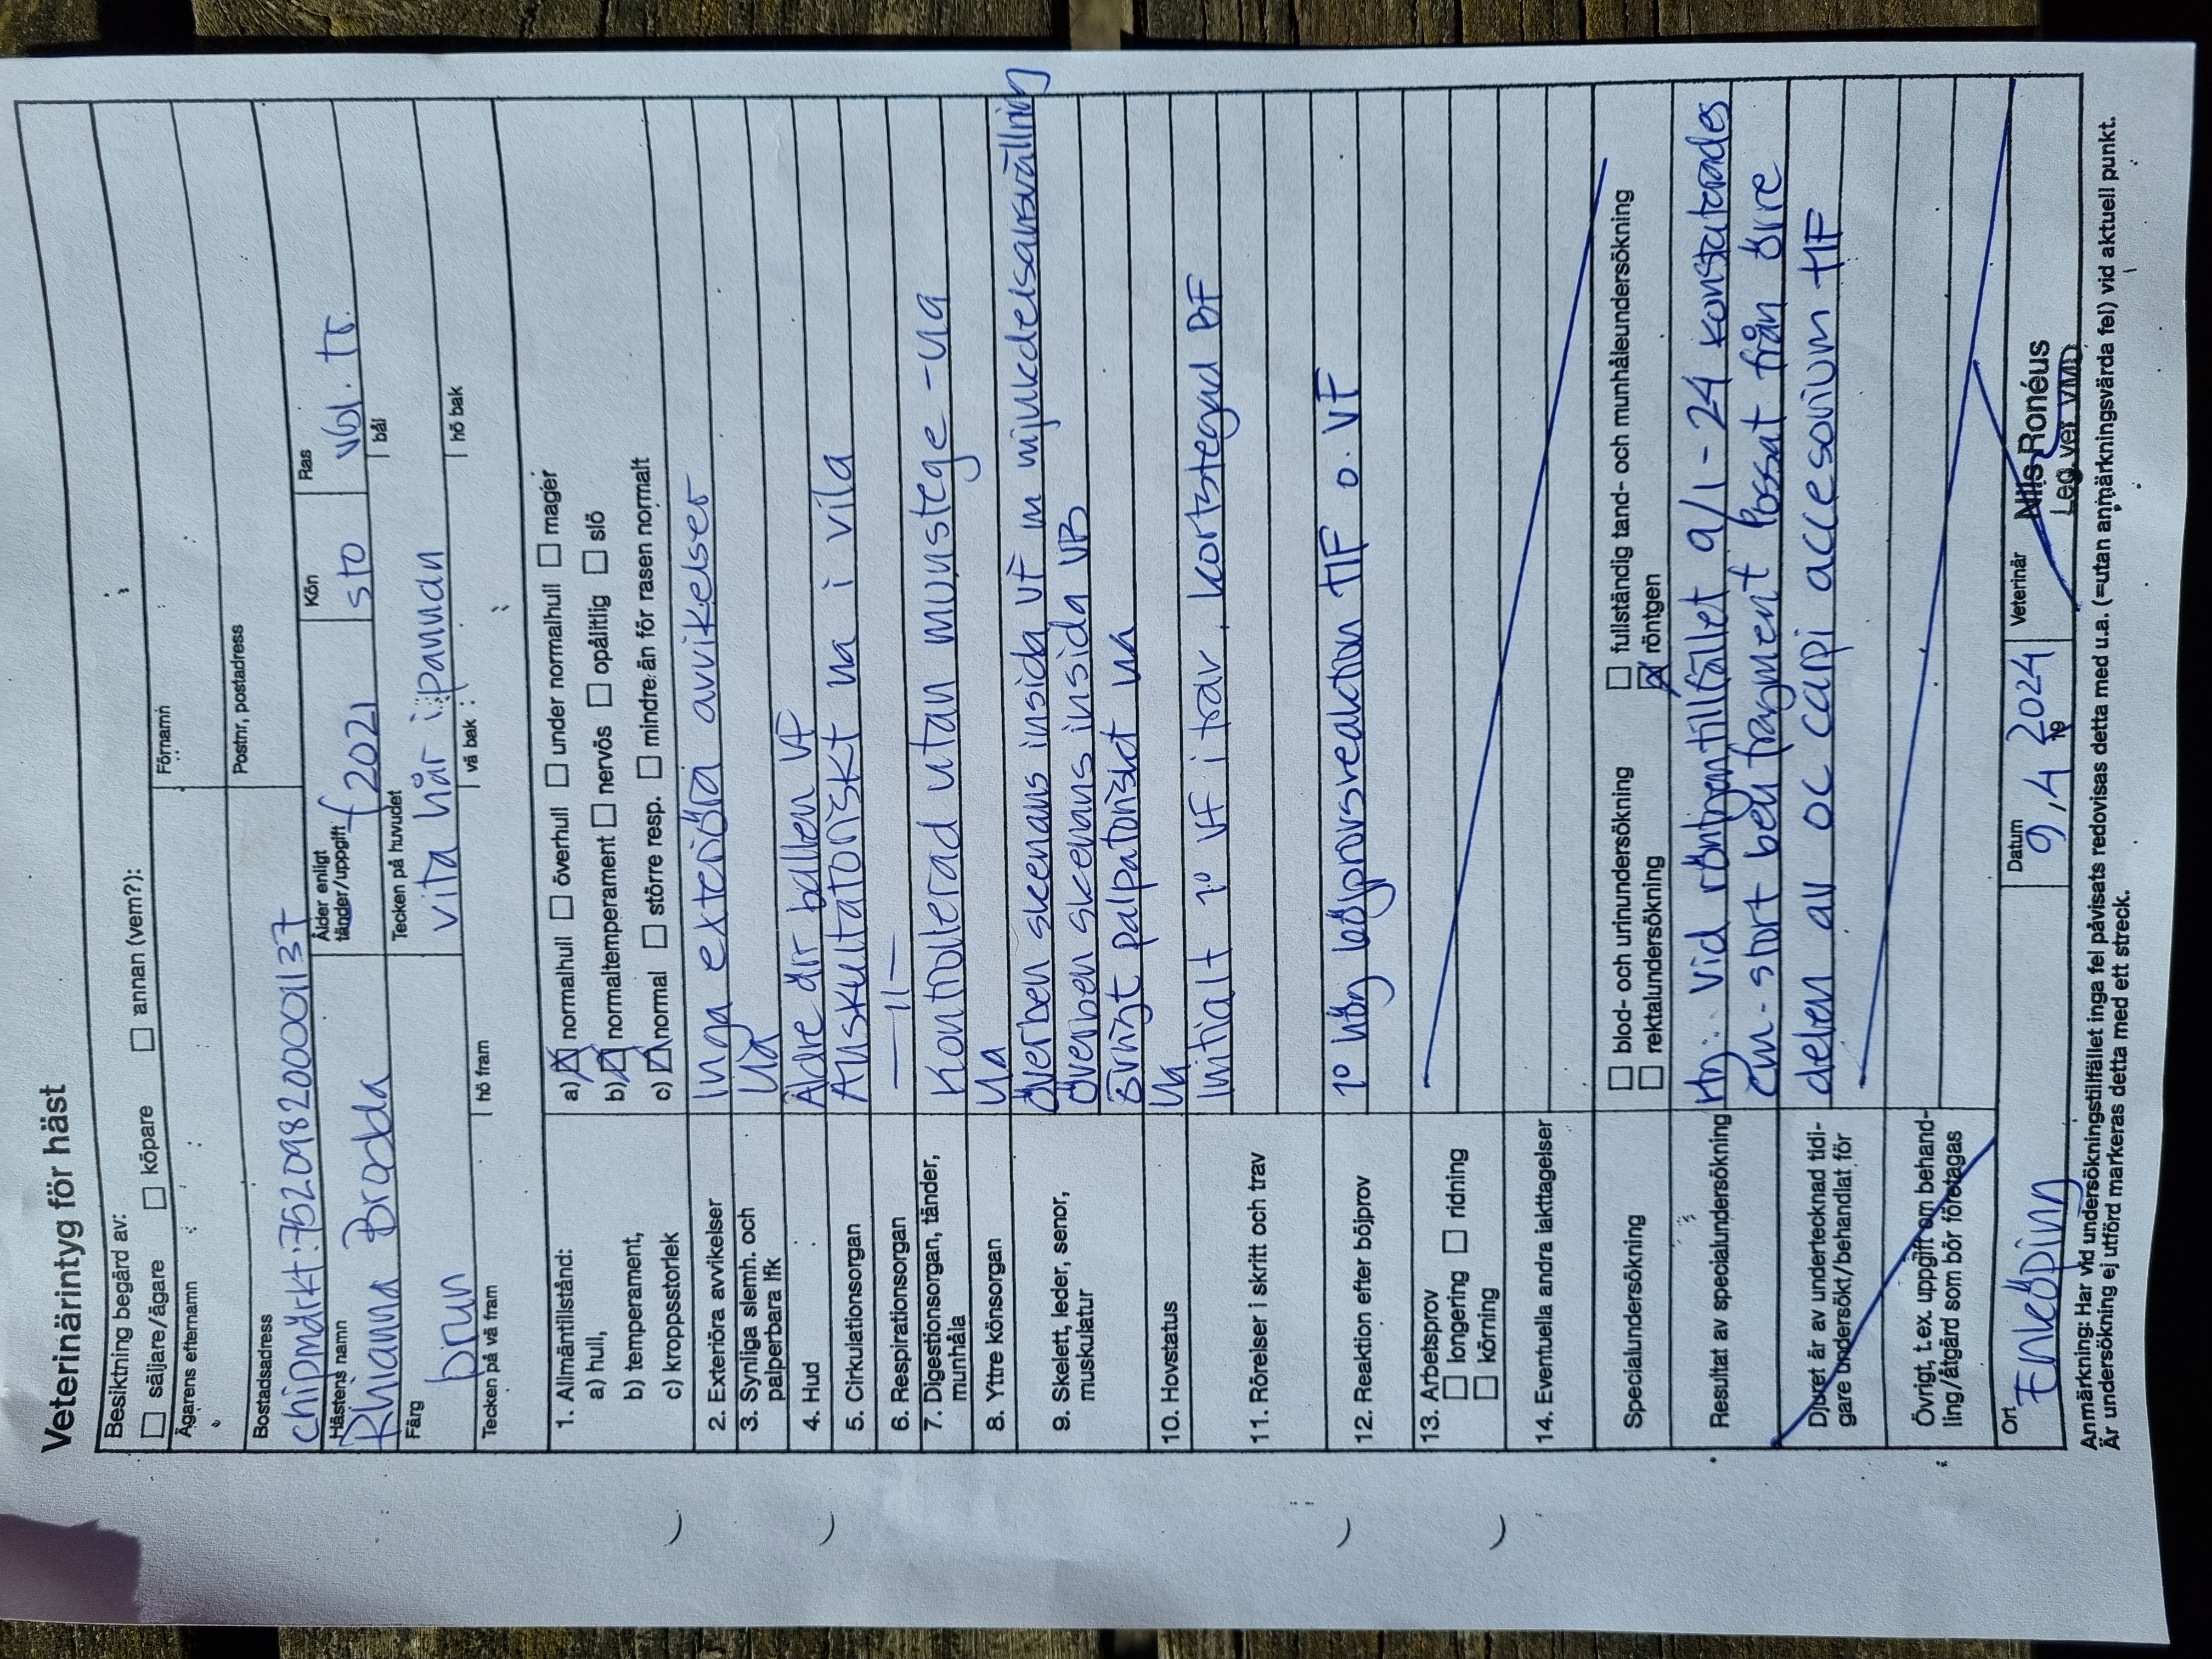 Veterinärintyg för häst
Besiktning begärd av:
☐ säljare/ägare ☐ köpare ☐ annan (vem?):
Ägarens efternamn Förnamn
Bostadsadress Postnr, postadress
chipmärkt: 752098200001137
Hästens namn Ålder enligt tänder/uppgift Kön Ras
Rhianna Brodda f 2021 sto vbl. tr.
Färg Tecken på huvudet bål
brun vita hår i pannan
Tecken på vä fram hö fram vä bak hö bak
1. Allmäntillstånd:
a) hull, a) ☒ normalhull ☐ överhull ☐ under normalhull ☐ mager
b) temperament, b) ☒ normaltemperament ☐ nervös ☐ opålitlig ☐ slö
c) kroppsstorlek c) ☒ normal ☐ större resp. ☐ mindre än för rasen normalt
2. Exteriöra avvikelser Inga exteriöra avvikelser
3. Synliga slemh. och palperbara lfk Ua
4. Hud Äldre ärr ballen VF
5. Cirkulationsorgan Auskultatoriskt ua i vila
6. Respirationsorgan —11—
7. Digestionsorgan, tänder, munhåla Kontrollerad utan munstege - ua
8. Yttre könsorgan Ua
9. Skelett, leder, senor, muskulatur Överben skenans insida VF m mjukdelsansvällning
Överben skenans insida VB
Övrigt palpatoriskt ua
10. Hovstatus Ua
11. Rörelser i skritt och trav Initialt 1° VF i trav, kortstegad BF
12. Reaktion efter böjprov 1° hög böjprovsreaktion HF o. VF
13. Arbetsprov
☐ longering ☐ ridning
☐ körning
14. Eventuella andra iakttagelser
Specialundersökning ☐ blod- och urinundersökning ☐ fullständig tand- och munhåleundersökning
☐ rektalundersökning ☒ röntgen
Resultat av specialundersökning Rtg: Vid röntgentillfället 9/1-24 konstaterades
cm-stort benfragment lossat från övre
Djuret är av undertecknad tidi-
gare undersökt/behandlat för delen av oc carpi accesorium HF
Övrigt, t.ex. uppgift om behand-
ling/åtgärd som bör företagas
Ort Datum Veterinär
Enköping 9/4 19 2024 Nils Ronéus
Leg. vet. VMD
Anmärkning: Har vid undersökningstillfället inga fel påvisats redovisas detta med u.a. (=utan anmärkningsvärda fel) vid aktuell punkt.
Är undersökning ej utförd markeras detta med ett streck.